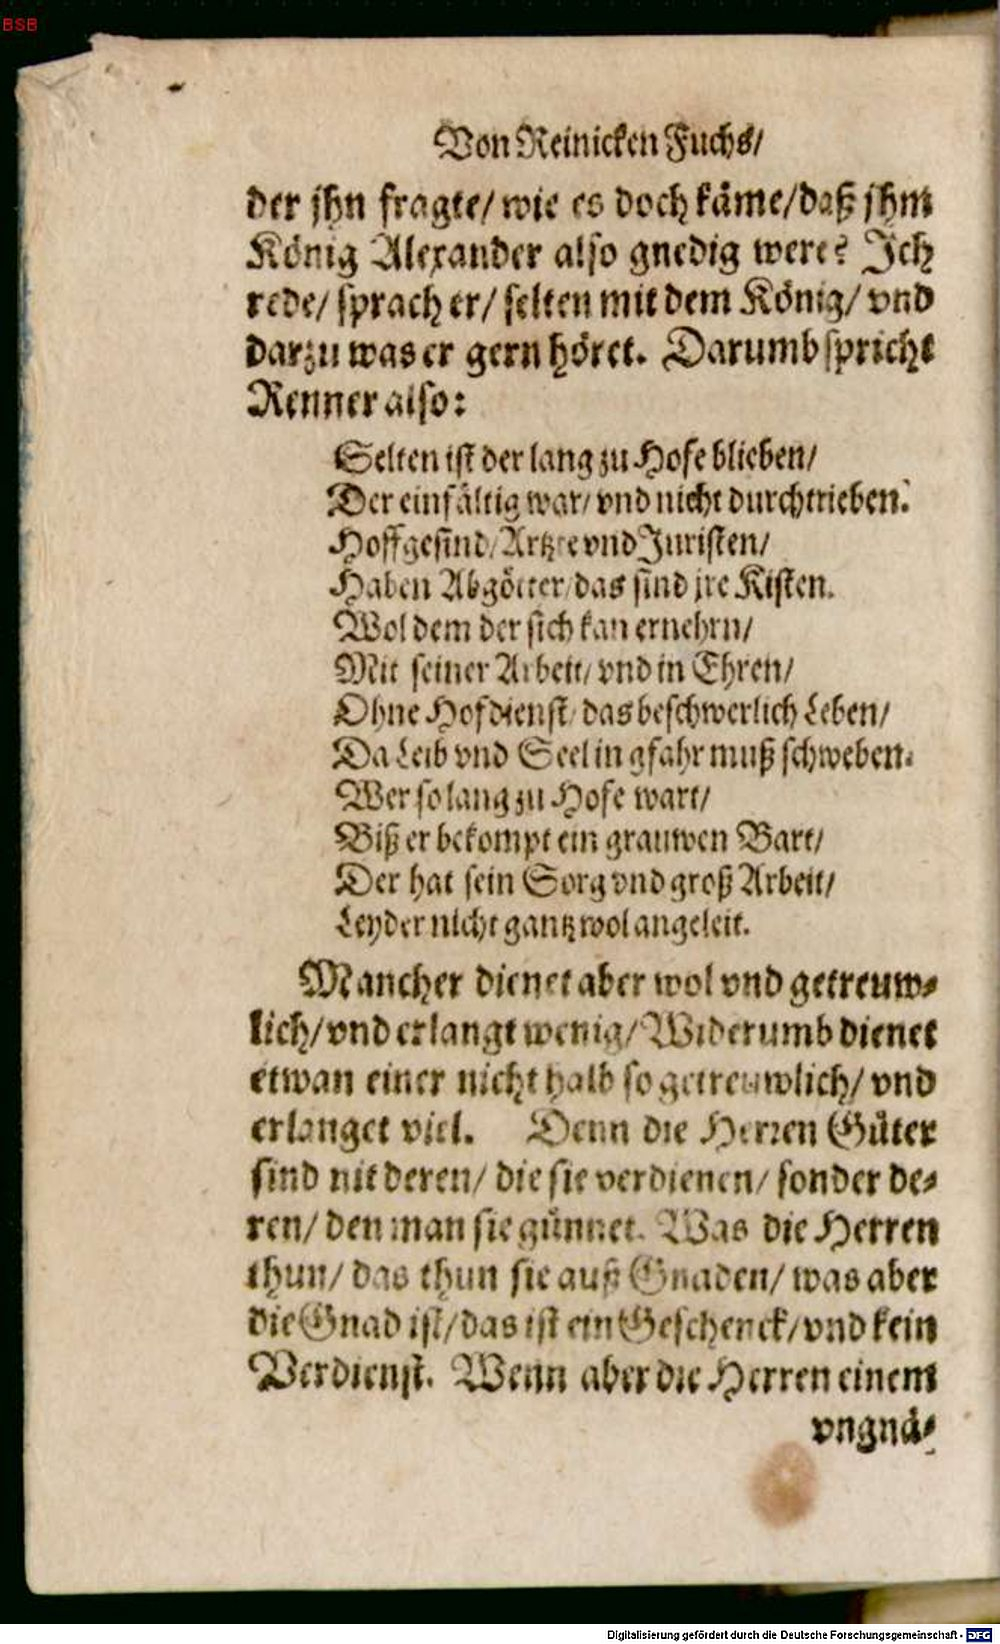 BSB
Von Reinicken Fuchs/
der jhn fragte/ wie es doch käme/ daß jhm
König Alexander also gnedig were? Ich
rede/ sprach er/ selten mit dem König/ vnd
darzu was er gern höret. Darumb spricht
Renner also:
Selten ist der lang zu Hofe blieben/
Der einfältig war/ vnd nicht durchtrieben.
Hoffgesind/ Artzte vnd Juristen/
Haben Abgötter/ das sind jre Kisten.
Wol dem der sich kan ernehrn/
Mit seiner Arbeit/ vnd in Ehren/
Ohne Hofdienst/ das beschwerlich Leben/
Da Leib vnd Seel in gfahr muß schweben.
Wer so lang zu Hofe wart/
Biß er bekompt ein grauwen Bart/
Der hat sein Sorg vnd groß Arbeit/
Leyder nicht gantz wol angeleit.
Mancher dienet aber wol vnd getreuw-
lich/ vnd erlangt wenig/ Widerumb dienet
etwan einer nicht halb so getreuwlich/ vnd
erlanget viel. Denn die Herren Güter
sind nit deren/ die sie verdienen/ sonder de-
ren/ den man sie günnet. Was die Herren
thun/ das thun sie auß Gnaden/ was aber
die Gnad ist/ das ist ein Geschenck/ vnd kein
Verdienst. Wenn aber die Herren einem
vngnä-
Digitalisierung gefördert durch die Deutsche Forschungsgemeinschaft - DFG